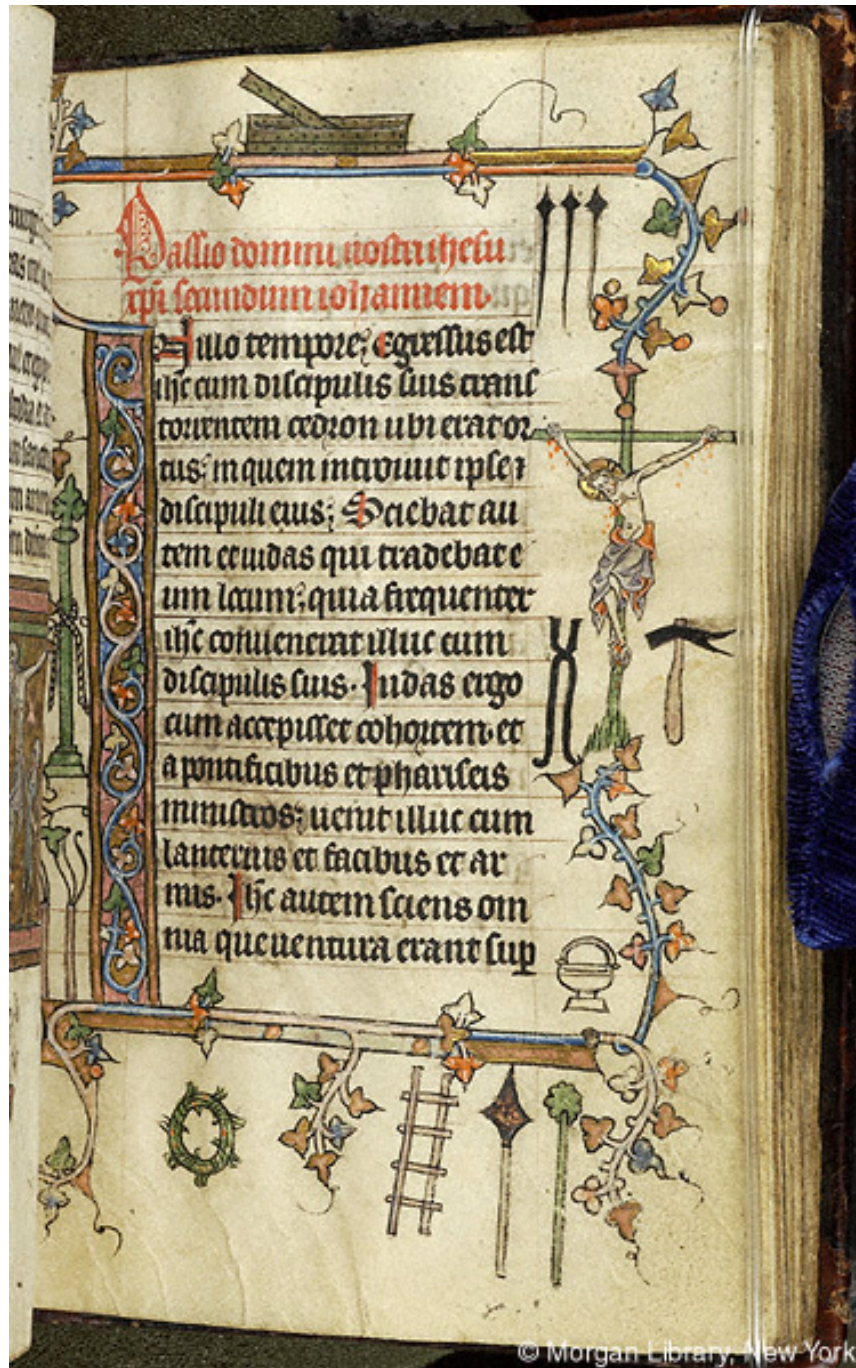 Passio domini nostri ihesu
xpi secundum iohannem.
In illo tempore; Egressus est
ihc cum discipulis suis trans
torrentem cedron ubi erat or
tus; in quem introiuit ipse ⁊
discipuli eius; Sciebat au
tem et iudas qui tradebat e
um locum; quia frequenter
ihc conuenerat illuc cum
discipulis suis. Iudas ergo
cum accepisset cohortem et
a pontificibus et phariseis
ministros; uenit illuc cum
lanternis et facibus et ar
mis. Ihc autem sciens om
nia que uentura erant sup
© Morgan Library, New York